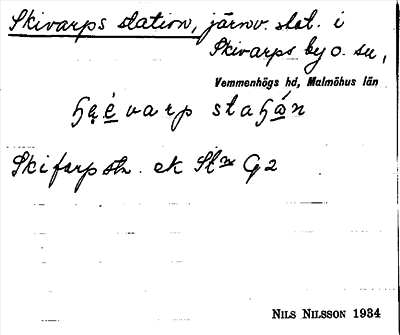 Skivarps station, järnv. stat. i
Skivarps by o. sn,
Vemmenhögs hd, Malmöhus län
varp
Skifarp stn. ek St G2
NILS NILSSON 1934